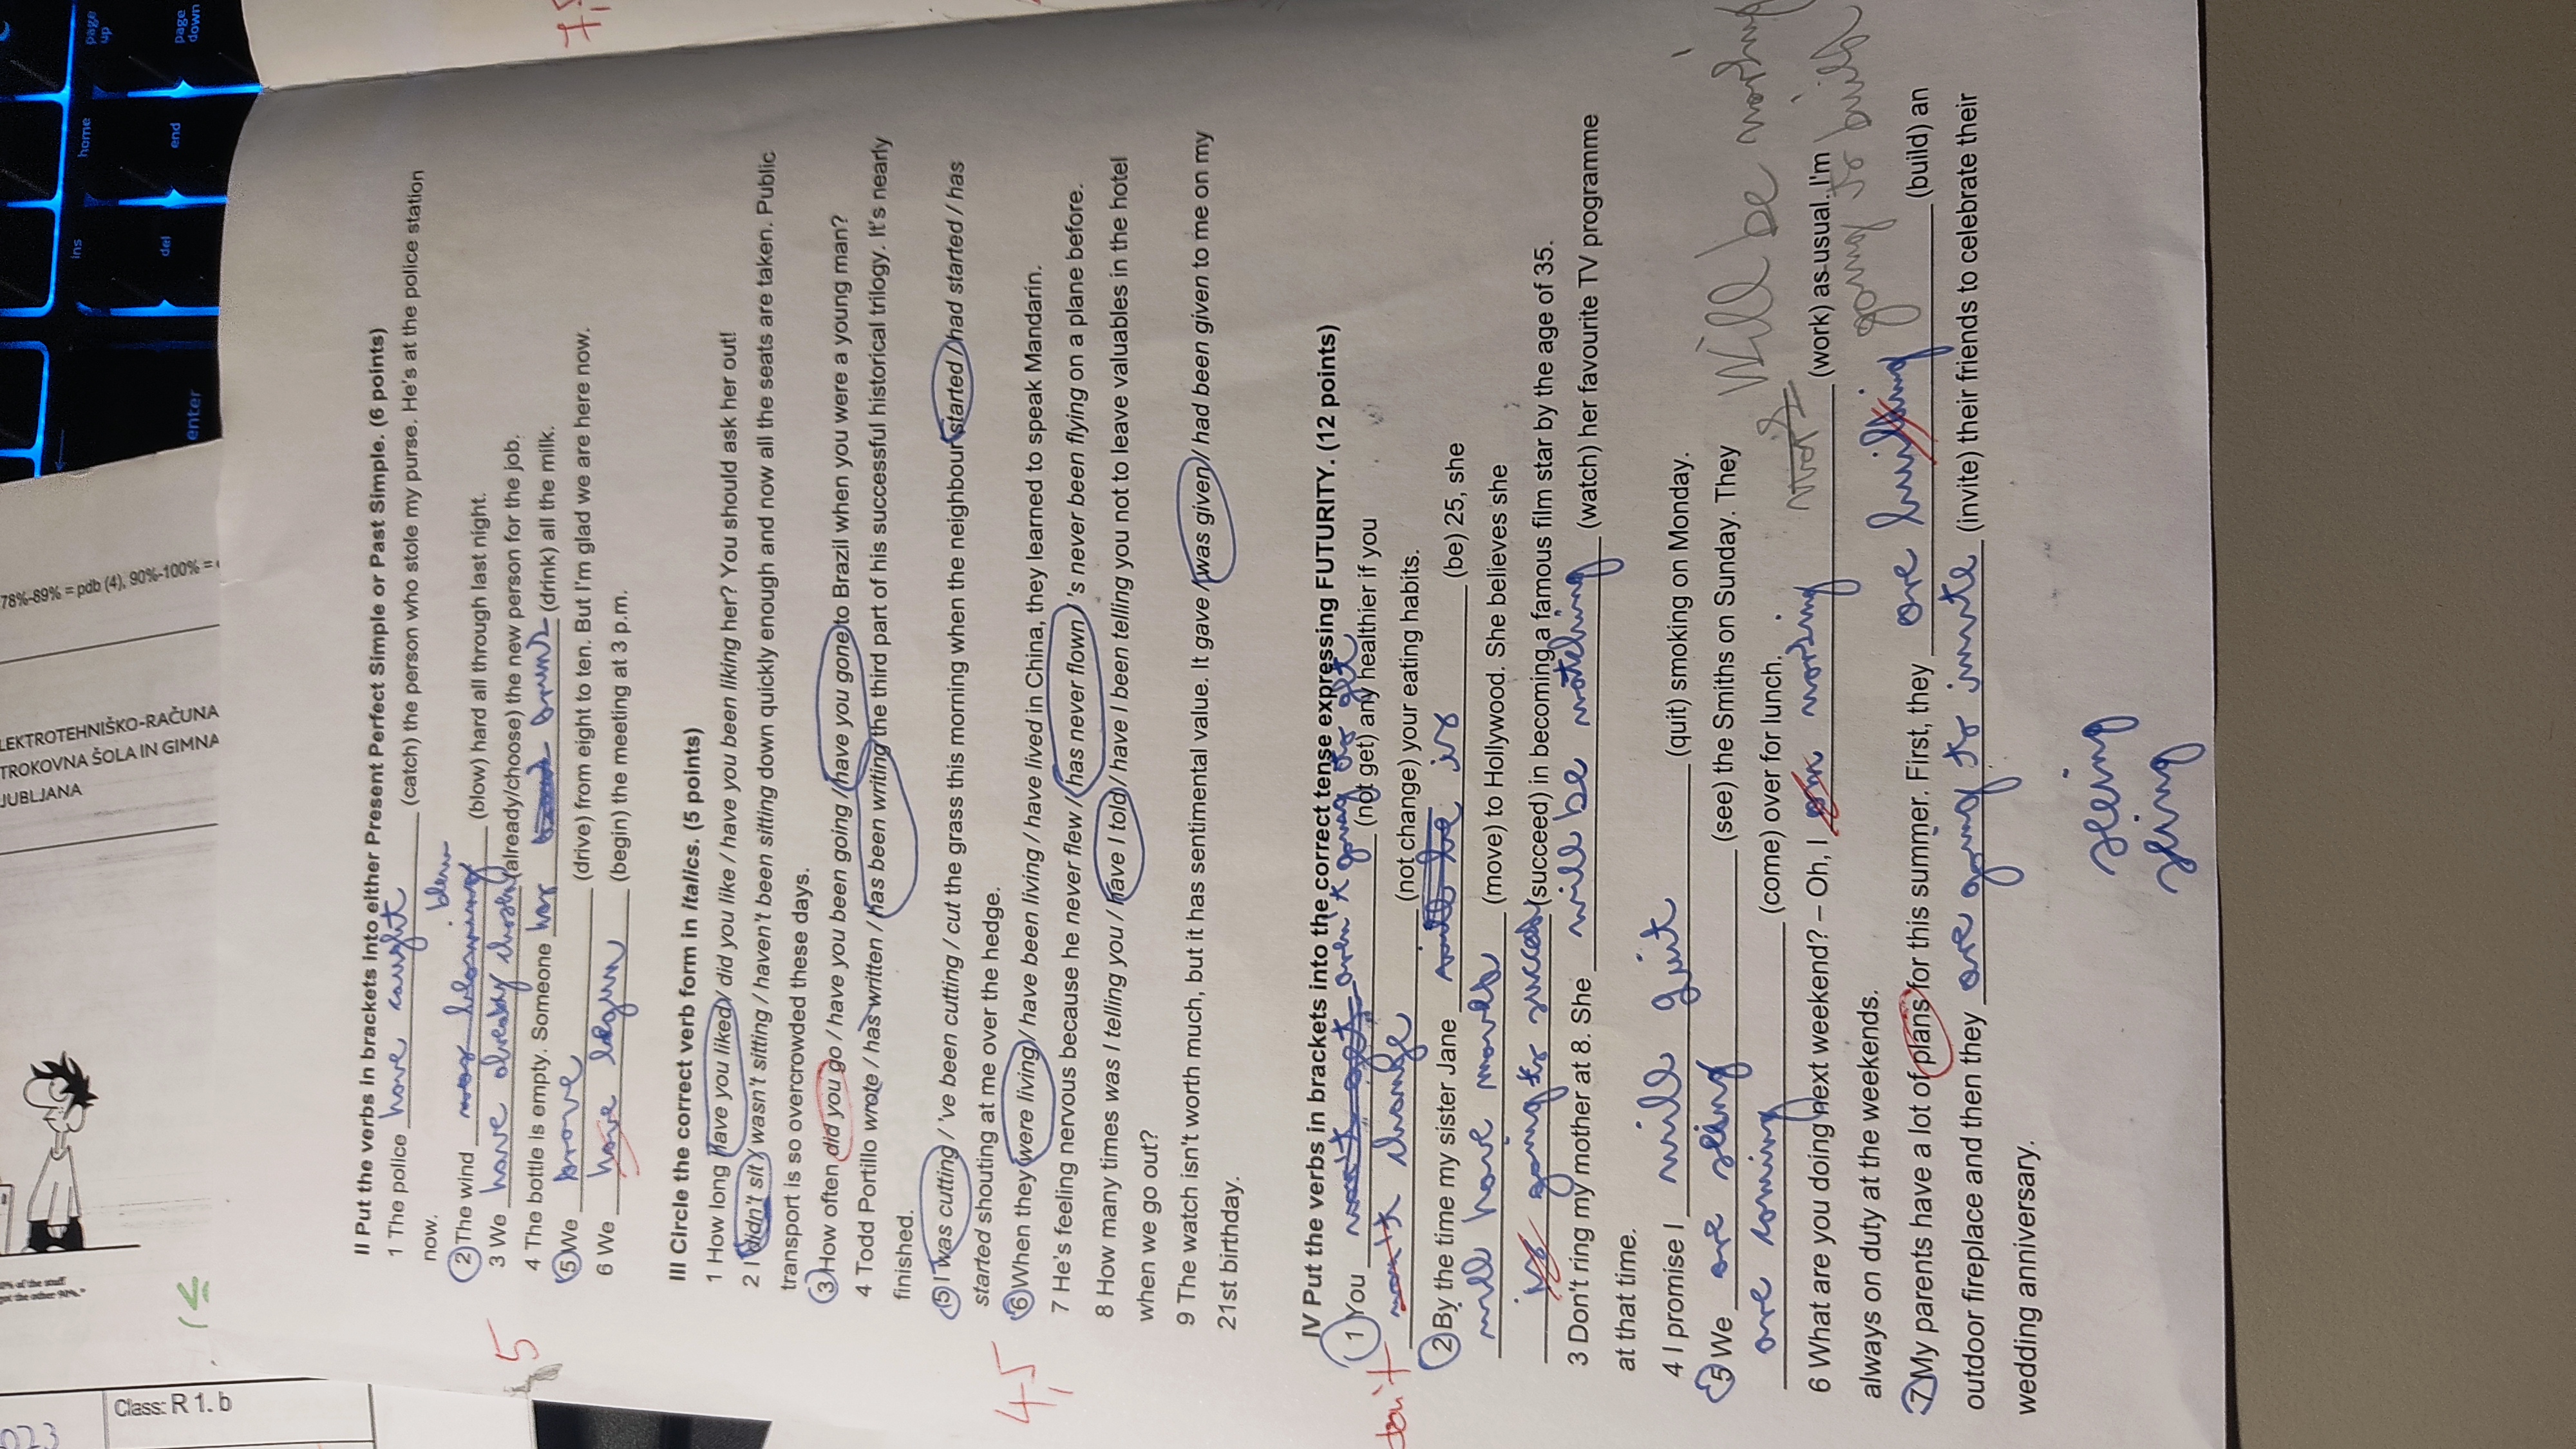 023
Class: R 1. b
LEKTROTEHNIŠKO-RAČUNA
TROKOVNA ŠOLA IN GIMNA
JUBLJANA
78%-89% = pdb (4), 90%-100% =
ins
home
page up
del
end
page down
enter
II Put the verbs in brackets into either Present Perfect Simple or Past Simple. (6 points)
1 The police have caught (catch) the person who stole my purse. He's at the police station
now.
blew
2 The wind was blowing (blow) hard all through last night.
5
3 We have already chosen (already/choose) the new person for the job.
4 The bottle is empty. Someone has drunk (drink) all the milk.
5 We drove (drive) from eight to ten. But I'm glad we are here now.
6 We have begun (begin) the meeting at 3 p.m.
III Circle the correct verb form in italics. (5 points)
1 How long have you liked / did you like / have you been liking her? You should ask her out!
2 I didn't sit / wasn't sitting / haven't been sitting down quickly enough and now all the seats are taken. Public
transport is so overcrowded these days.
3 How often did you go / have you been going / have you gone to Brazil when you were a young man?
4 Todd Portillo wrote / has written / has been writing the third part of his successful historical trilogy. It's nearly
finished.
5 I was cutting / 've been cutting / cut the grass this morning when the neighbour started / had started / has
started shouting at me over the hedge.
4,5
6 When they were living / have been living / have lived in China, they learned to speak Mandarin.
7 He's feeling nervous because he never flew / has never flown / 's never been flying on a plane before.
8 How many times was I telling you / have I told / have I been telling you not to leave valuables in the hotel
when we go out?
9 The watch isn't worth much, but it has sentimental value. It gave / was given / had been given to me on my
21st birthday.
IV Put the verbs in brackets into the correct tense expressing FUTURITY. (12 points)
1 You won't get aren't going to get (not get) any healthier if you
don't won't change (not change) your eating habits.
2 By the time my sister Jane will be is (be) 25, she
will have moved (move) to Hollywood. She believes she
is going to succeed (succeed) in becoming a famous film star by the age of 35.
3 Don't ring my mother at 8. She will be watching (watch) her favourite TV programme
at that time.
4 I promise I will quit (quit) smoking on Monday.
5 We are seeing (see) the Smiths on Sunday. They
are coming (come) over for lunch.
will be working
6 What are you doing next weekend? – Oh, I am working (work) as usual. I'm
always on duty at the weekends.
going to build
7 My parents have a lot of plans for this summer. First, they are building (build) an
outdoor fireplace and then they are going to invite (invite) their friends to celebrate their
wedding anniversary.
seeing
seing